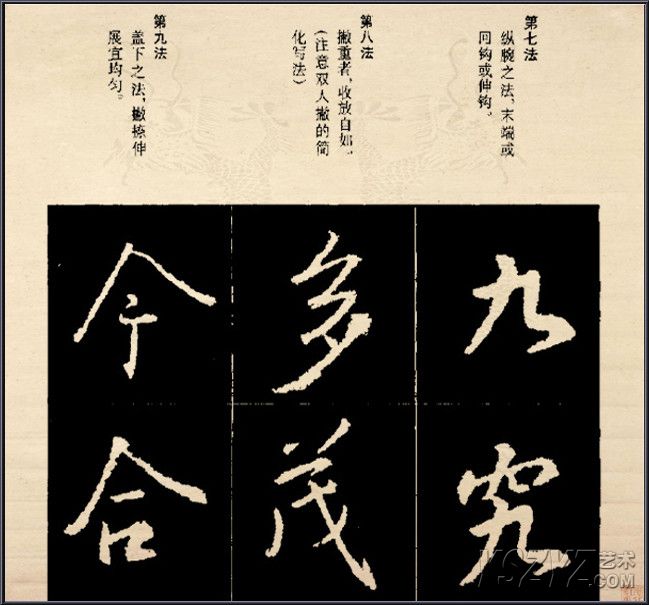 第七法
纵腕之法，末端或
回钩或伸钩。
九
究
第八法
撇重者，收放自如，
（注意双人撇的简
化写法）
多
茂
第九法
盖下之法，撇捺伸
展宜均匀。
今
合
YSZYZ艺术